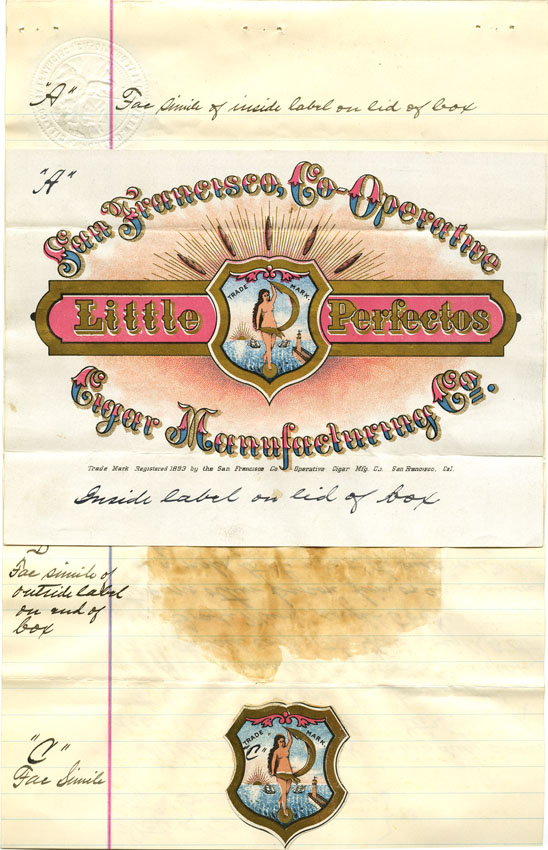 "A" Fac simile of inside label on lid of box
"A"
San Francisco, Co-Operative
TRADE MARK
Little Perfectos
Cigar Manufacturing Co.
Trade Mark Registered 1893 by the San Francisco Co Operative Cigar Mfg. Co. San Francisco, Cal.
Inside label on lid of box
Fac simile of
outside label
on end of
box
TRADE MARK
"C"
"C"
Fac Simile